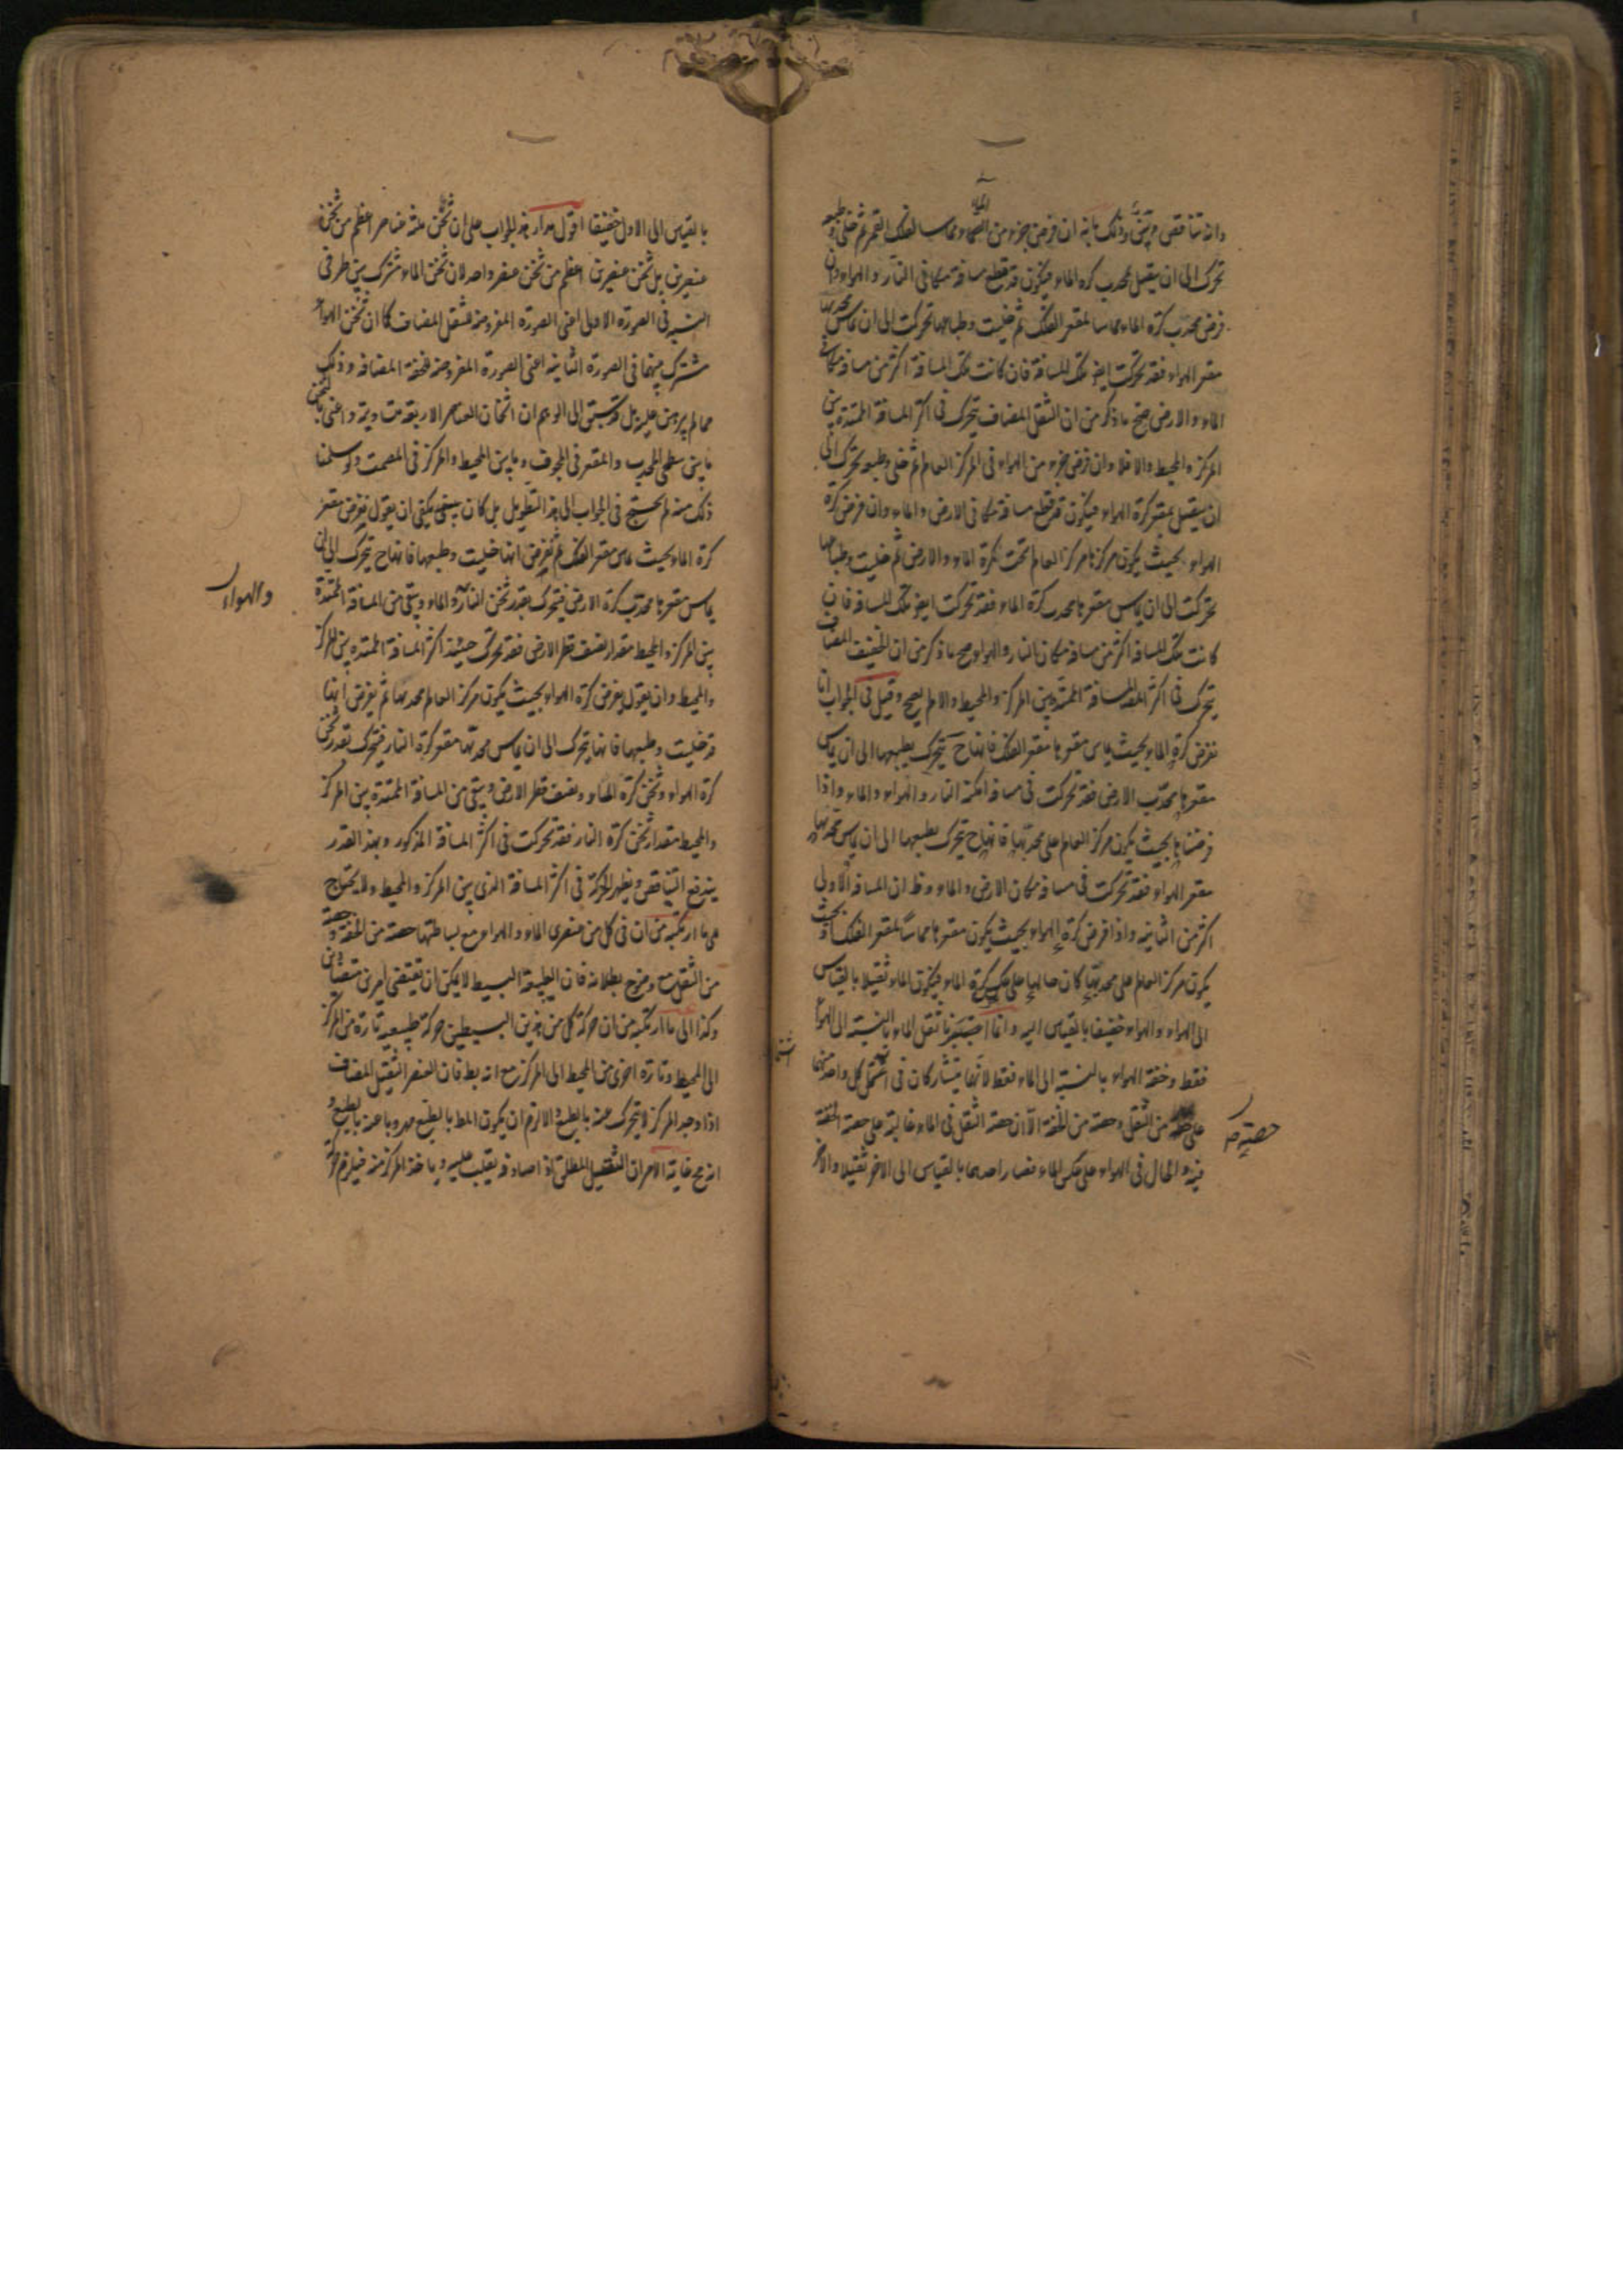 وانه تناقض وذلك بانه ان فرض جزء من الماء مماسا لفلك القمر ثم خلى وطبعه
تحرك الى ان يتصل بمحدب كرة الماء فيكون قد قطع مسافة مكانى النار والهواء وان
فرض محدب كرة الماء مماسا لمقعر الفلك ثم خليت وطباعها تحركت الى ان يماس محدبها
مقعر الهواء فقد تحركت ايضا تلك المسافة فان كانت تلك المسافة اكثر من مسافة مكانى
الماء والارض صح ما ذكر من ان الثقل المضاف يتحرك فى اكثر المسافة الممتدة بين
المركز والمحيط والا فلا وان فرض جزء من الهواء فى المركز العالم ثم خلى وطبعه تحرك الى
ان يتصل بمقعر كرة الهواء فيكون قد قطع مسافة مكانى الارض والماء وان فرض كرة
الهواء بحيث يكون مركزها مركز العالم تحت كرة الماء والارض ثم خليت وطباعها
تحركت الى ان يماس مقعرها محدب كرة الماء فقد تحركت ايضا تلك المسافة فان
كانت تلك المسافة اكثر من مسافة مكان النار والهواء صح ما ذكر من ان الخفيف المضاف
يتحرك فى اكثر المسافة الممتدة بين المركز والمحيط والا لم يصح وقيل فى الجواب انا
نفرض كرة الماء بحيث يماس مقعرها مقعر الفلك فانها ح يتحرك بطبعها الى ان يماس
مقعرها محدب الارض فقد تحركت فى مسافة امكنة النار والهواء والماء واذا
فرضناها بحيث يكون مركز العالم على محدبها فانها ح يتحرك بطبعها الى ان يماس محدبها
مقعر الهواء فقد تحركت فى مسافة مكان الارض والماء وظ ان المسافة الاولى
اكثر من الثانية واذا فرض كرة الهواء بحيث يكون مقعرها مماسا لمقعر الفلك او بحيث
يكون مركز العالم على محدبها كان حالها على عكس كرة الماء فيكون الماء ثقيلا بالقياس
الى الهواء والهواء خفيفا بالقياس اليه وانما اعتبرنا ثقل الماء بالنسبة الى الهواء
فقط وخفة الهواء بالنسبة الى الماء فقط لانهما يتشاركان فى اشتمال كل واحد منهما
على حصة من الثقل وحصة من الخفة الا ان حصة الثقل فى الماء غالبة على حصة الخفة
فيه والحال فى الهواء على عكس الماء فصار احدهما بالقياس الى الاخر ثقيلا والاخر
حصته
بالقياس الى الاول خفيفا اقول مدار هذا الجواب على ان ثخن ثلثة عناصر اعظم من ثخن
عنصرين بل ثخن عنصرين اعظم من ثخن عنصر واحد لان ثخن الماء مشترك بين طرفى
النسبة فى الصورة الاولى اعنى الصورة المفروضة للثقل المضاف كما ان ثخن الهواء
مشترك بينهما فى الصورة الثانية اعنى الصورة المفروضة للخفة المضافة وذلك
مما لم يبرهن عليه بل قد سبق الى الوهم ان اثخان العناصر الاربعة متساوية واعنى بالثخن
ما بين سطحى المحدب والمقعر فى المجوف وما بين المحيط والمركز فى المصمت ولو سلمنا
ذلك منه لم يحتج فى الجواب الى هذا التطويل بل كان يكفى ان يقول نفرض مقعر
كرة الماء بحيث يماس مقعر الفلك ثم نفرض انها خليت وطبعها فانها ح يتحرك الى ان
يماس مقعرها محدب كرة الارض فيتحرك بقدر ثخن النار والماء ويبقى من المسافة الممتدة
والهواء
بين المركز والمحيط مقدار نصف قطر الارض فقد تحرك حينئذ اكثر المسافة الممتدة بين المركز
والمحيط وان يقول يفرض كرة الهواء بحيث يكون مركز العالم محدبها ثم يفرض انها
قد خليت وطبعها فانها يتحرك الى ان يماس محدبها مقعر كرة النار فيتحرك بقدر ثخن
كرة الهواء وثخن كرة الماء ونصف قطر الارض ويبقى من المسافة الممتدة بين المركز
والمحيط مقدار ثخن كرة النار فقد تحركت فى اكثر المسافة المذكور وبهذا القدر
يندفع التناقض ويظهر الحركة فى اكثر المسافة الذى بين المركز والمحيط ولا يحتاج
الى ما ارتكبه من ان فى كل من عنصرى الماء والهواء مع بساطتهما حصة من الخفة وحصة
من الثقل مع وضوح بطلانه فان الطبيعة البسيط لا يمكن ان تقتضى امرين متضادين
وكذا الى ما ارتكبه من ان حركة كل من هذين البسيطين حركة طبيعية تارة من المركز
الى المحيط وتارة اخرى من المحيط الى المركز مع انه بط فان العنصر الثقيل المضاف
اذا وجد المركز لا يتحرك عنه بالطبع والا لزم ان يكون المط بالطبع مهروبا عنه بالطبع و
انه مح غاية الامر ان الثقيل المطلق اذا صادفه يغلب عليه وياخذ المركز منه فيلزم